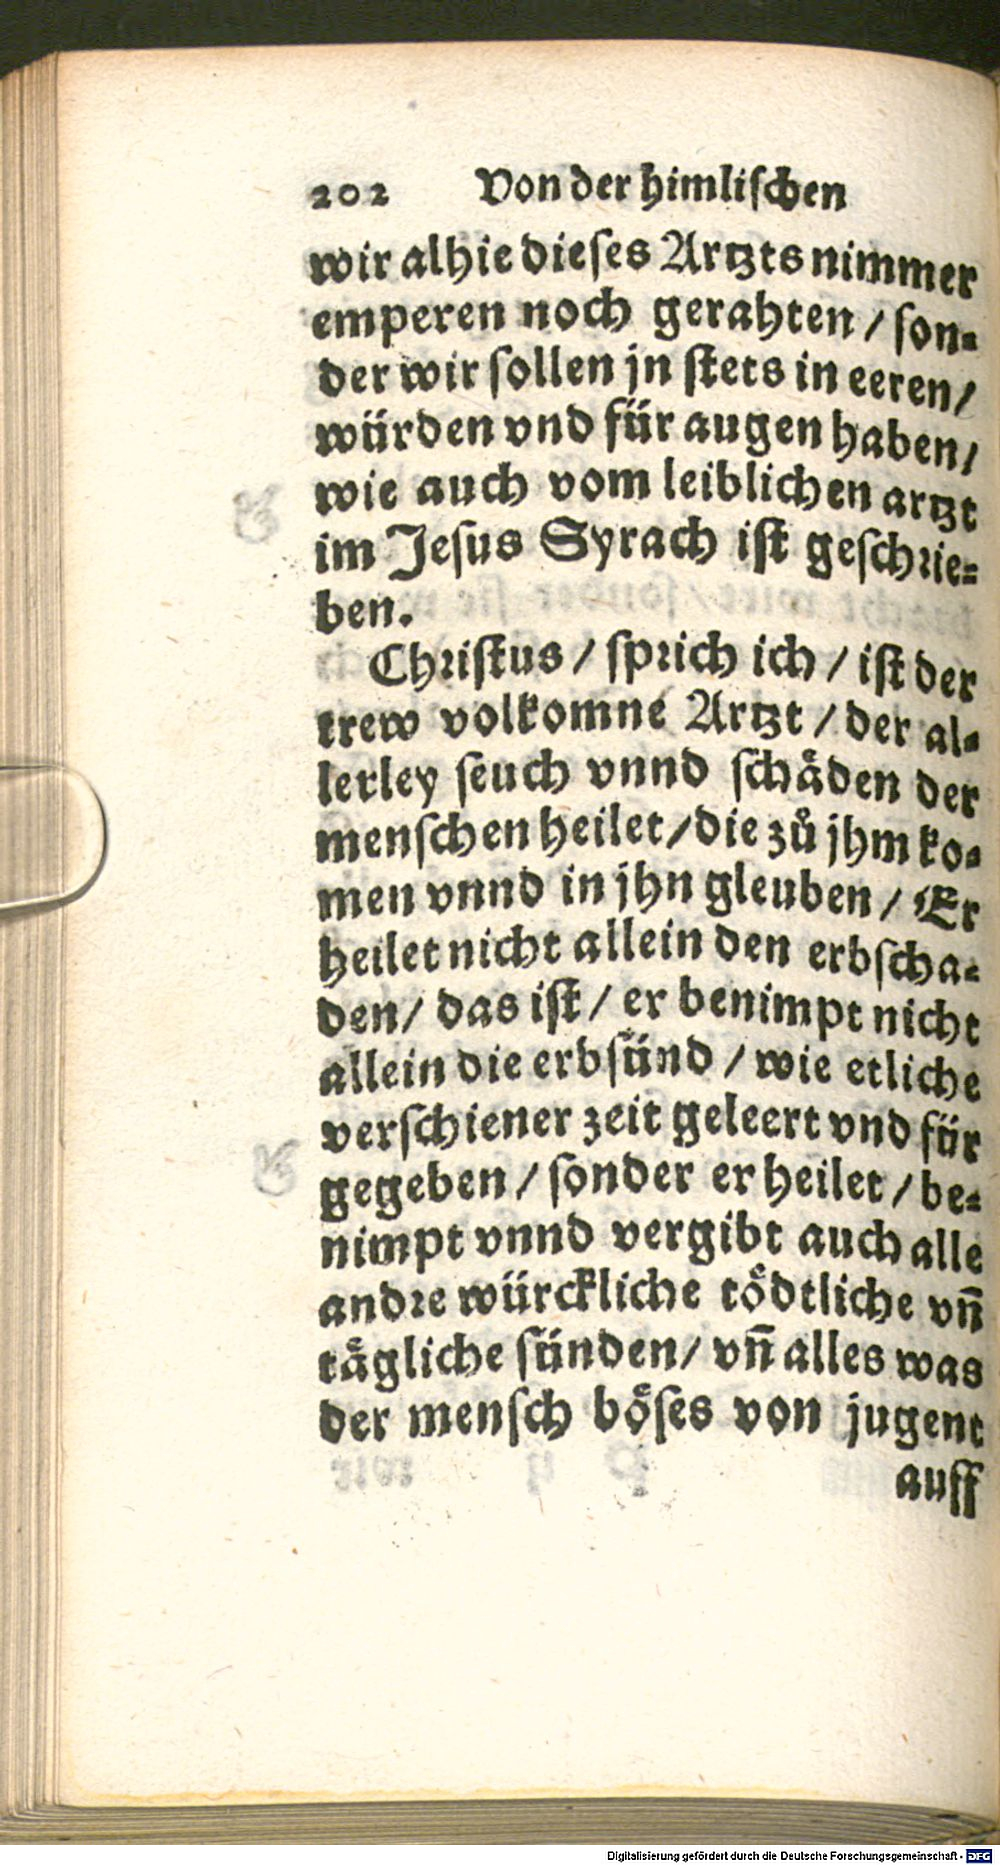 202 Von der himlischen
wir alhie dieses Artzts nimmer
emperen noch gerahten / son-
der wir sollen jn stets in eeren /
würden vnd für augen haben /
wie auch vom leiblichen artzt
im Jesus Syrach ist geschrie-
ben.
Christus / sprich ich / ist der
trew volkomne Artzt / der al-
lerley seuch vnnd schäden der
menschen heilet / die zů jhm ko-
men vnnd in jhn gleuben / Er
heilet nicht allein den erbscha-
den / das ist / er benimpt nicht
allein die erbsünd / wie etliche
verschiener zeit geleert vnd für
gegeben / sonder er heilet / be-
nimpt vnnd vergibt auch alle
andre würckliche tödtliche vn̄
tägliche sünden / vn̄ alles was
der mensch böses von jugent
auff
Digitalisierung gefördert durch die Deutsche Forschungsgemeinschaft - DFG